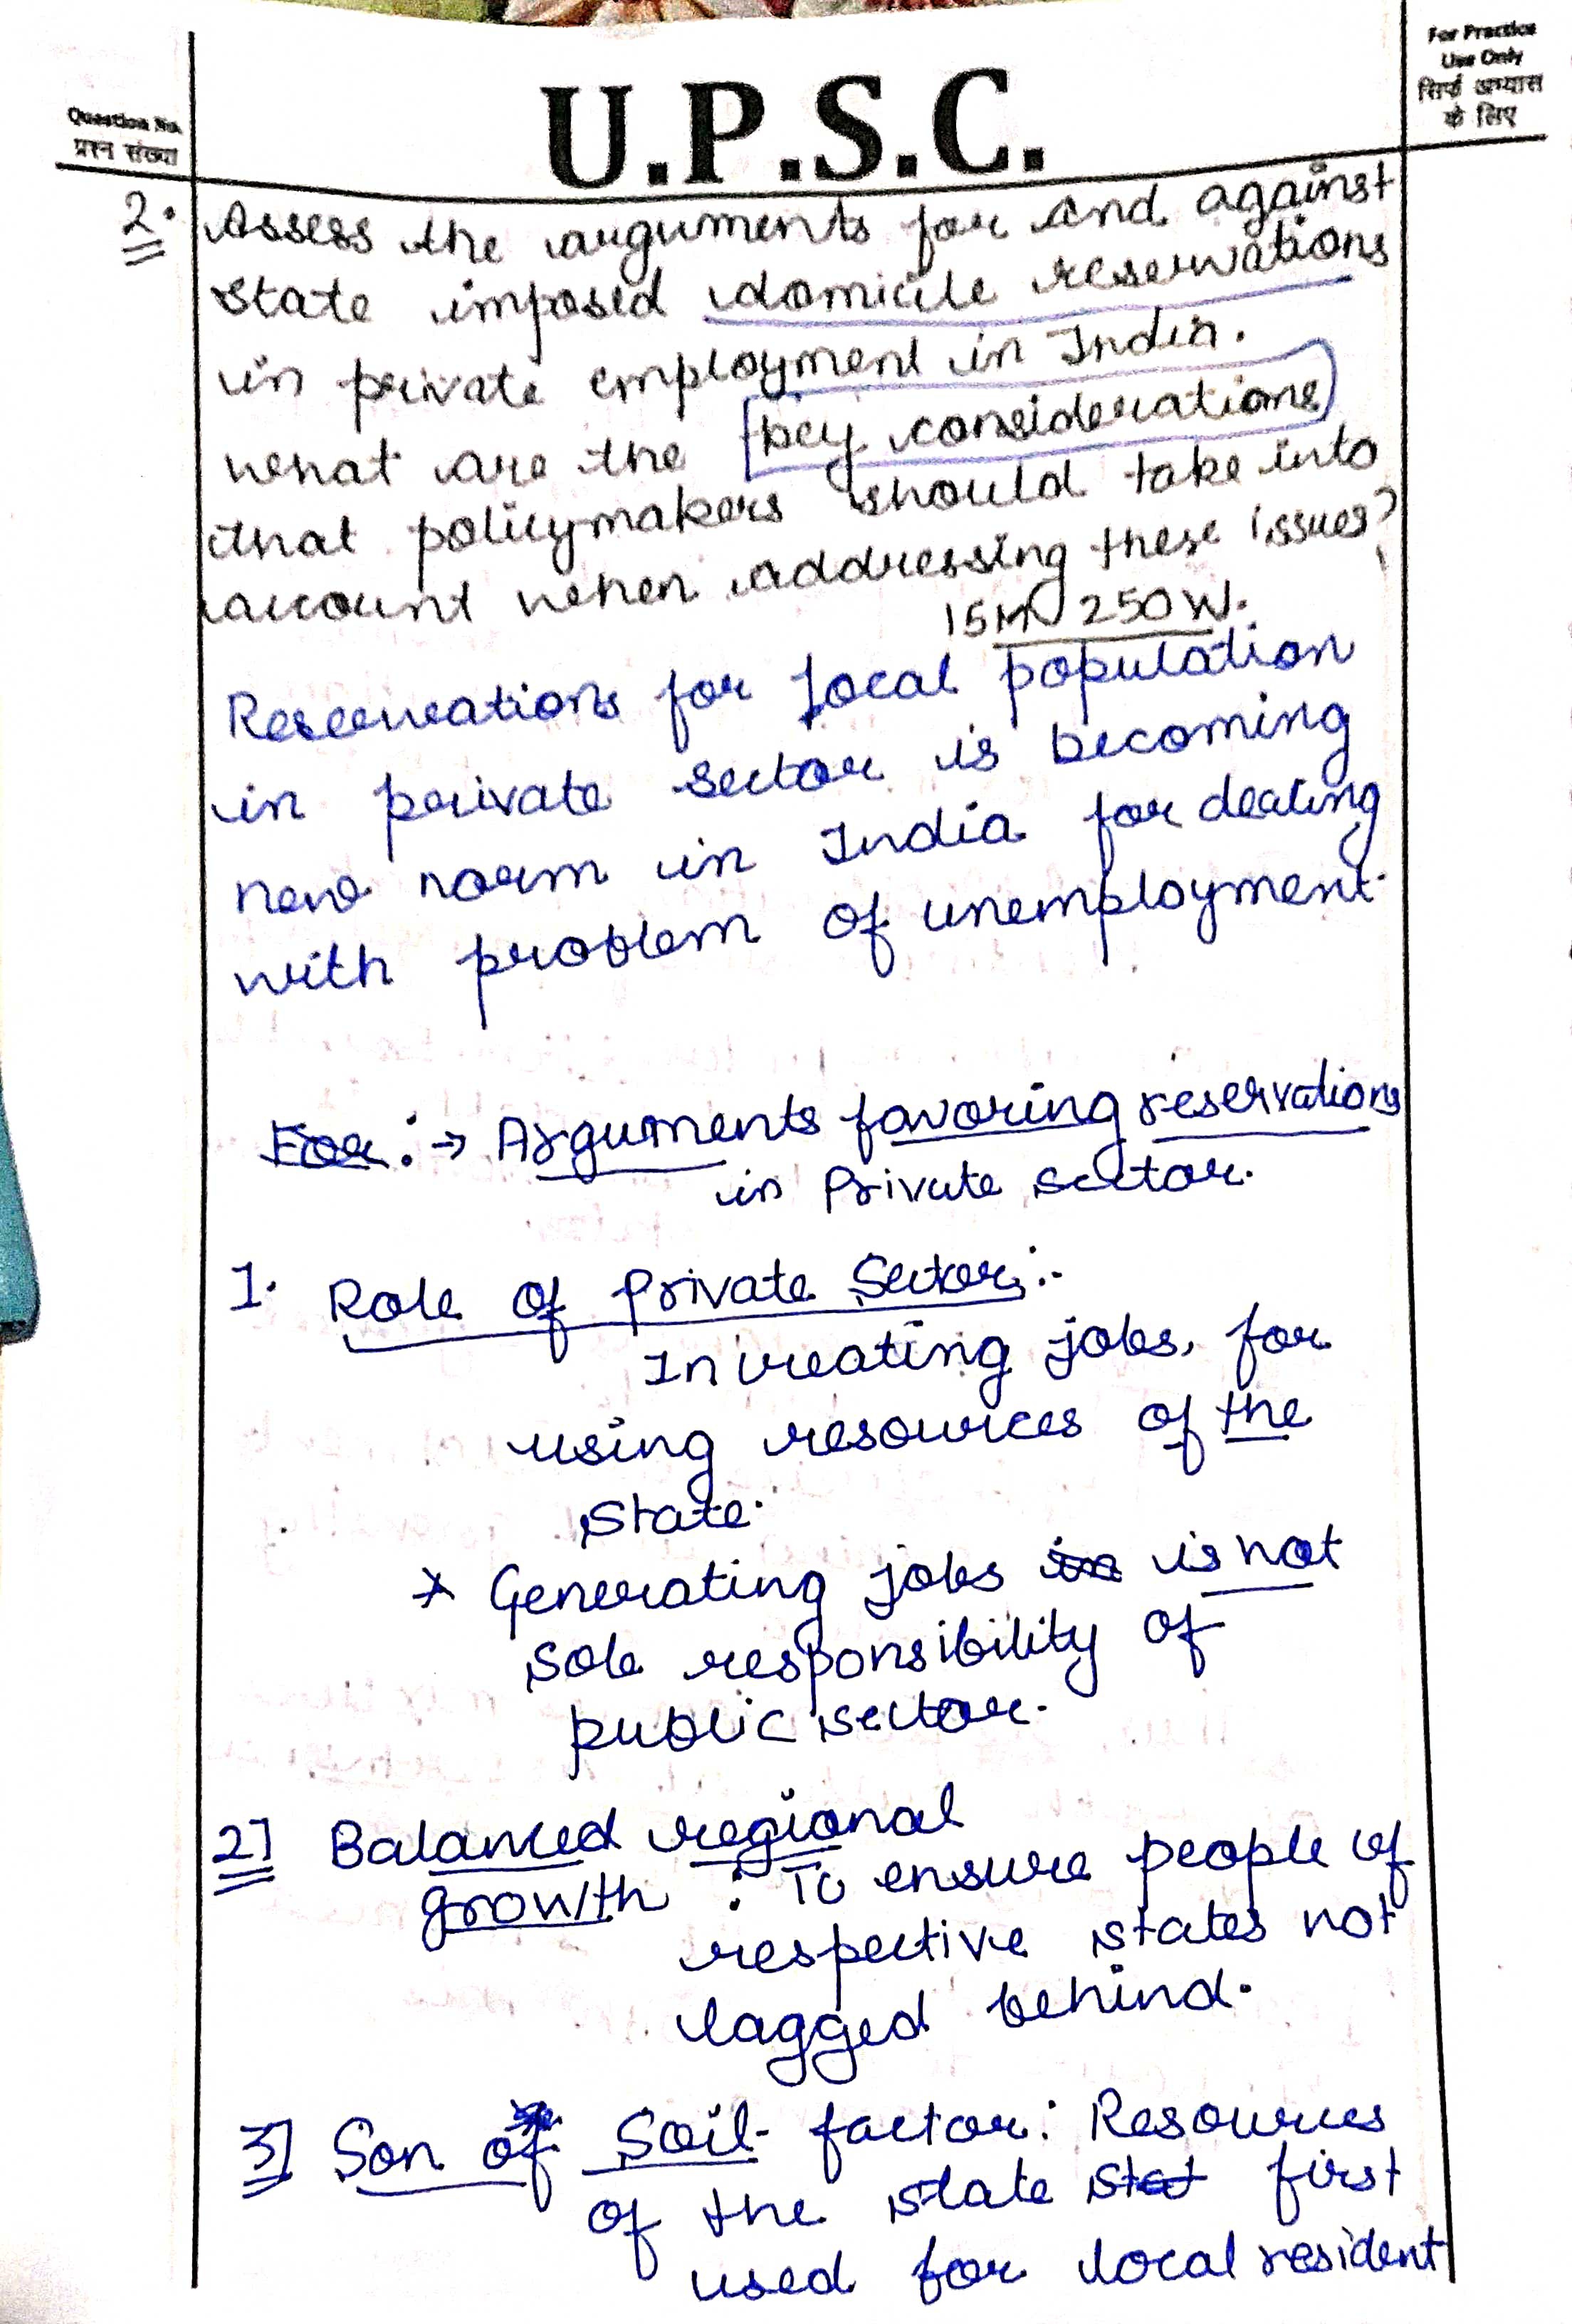 For Practice
Use Only
सिर्फ अभ्यास
के लिए
Question No.
प्रश्न संख्या
U.P.S.C.
2. Assess the arguments for and against
state imposed domicile reservations
in private employment in India.
what are the key considerations
that policymakers should take into
account when addressing these issues?
15M 250W.
Reservations for local population
in private sector is becoming
new norm in India for dealing
with problem of unemployment.
For :→ Arguments favoring reservations
in Private sector.
1. Role of Private Sector :-
In creating jobs, for
using resources of the
State.
* Generating jobs is not
sole responsibility of
public sector.
2] Balanced regional
growth : To ensure people of
respective states not
lagged behind.
3] Son of Soil factor : Resources
of the state first
used for local resident